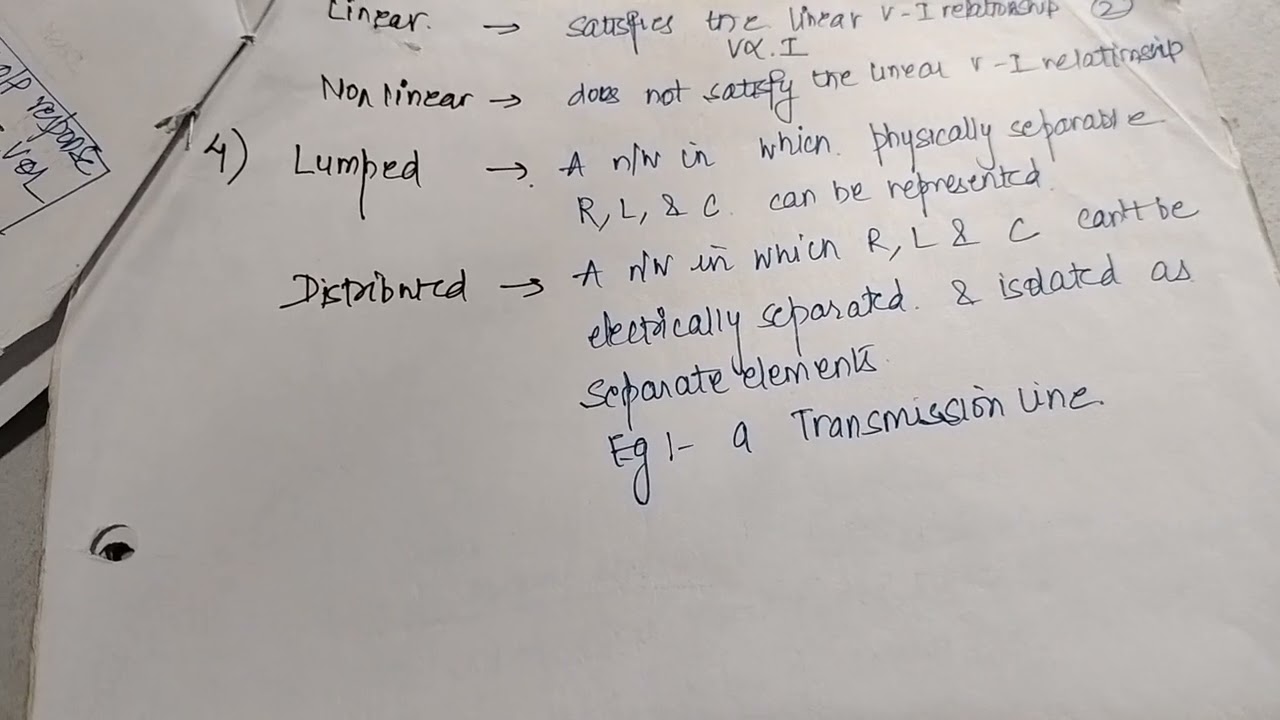 Linear. → satisfies the linear V-I relationship ②
V∝.I
Non linear → does not satisfy the linear V-I relationship
4) Lumped → A n/w in which physically separable
R, L, & C. can be represented.
Distributed → A n/w in which R, L & C can't be
electrically separated. & isolated as
separate elements.
Eg :- a Transmission line.
o/p response